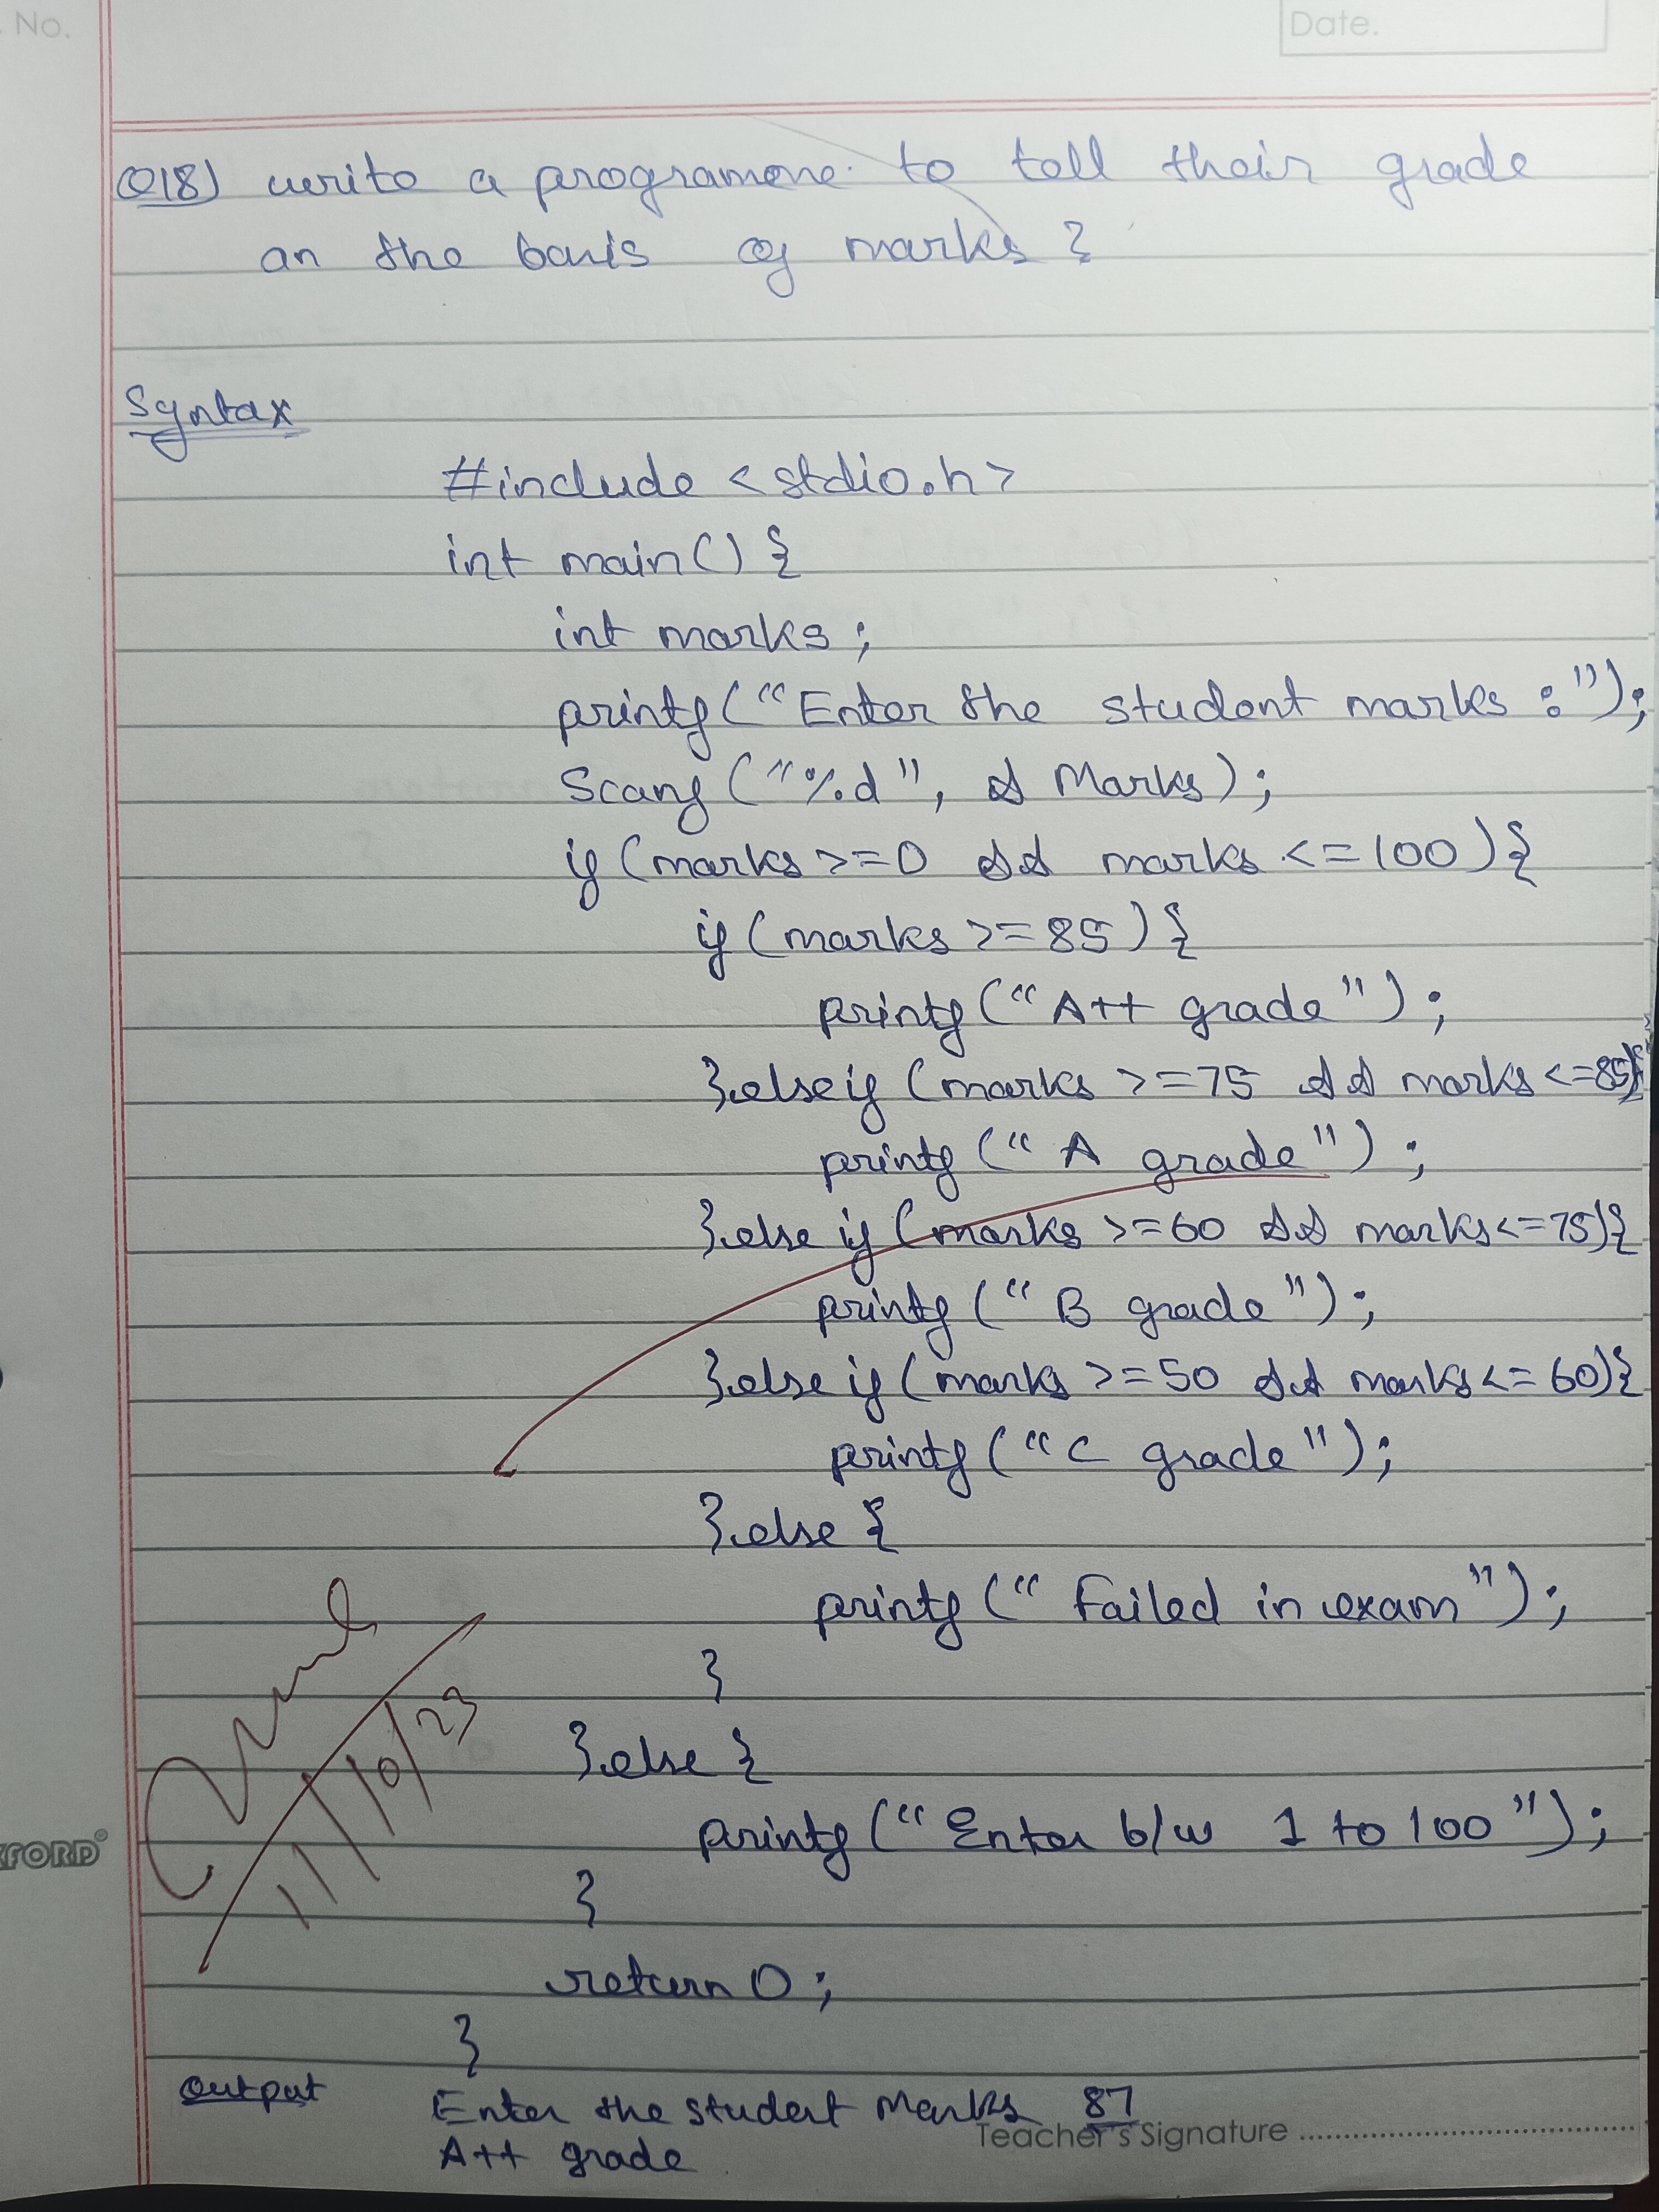 No.
Date.
Q18) write a programme to tell their grade
on the basis of marks ?
Syntax
#include <stdio.h>
int main() {
int marks ;
printf("Enter the student marks :");
Scanf ("%d", & Marks);
if (marks >=0 && marks <=100){
if (marks >=85){
printf("A++ grade");
}else if (marks >=75 && marks <=85){
printf ("A grade");
}else if (marks >=60 && marks<=75){
printf ("B grade");
}else if (marks >=50 && marks<=60){
printf ("C grade");
}else {
printf ("Failed in exam");
}
}else {
printf ("Enter b/w 1 to 100");
}
return 0;
}
11/10/23
Output
Enter the student Marks 87
A++ grade
Teacher's Signature